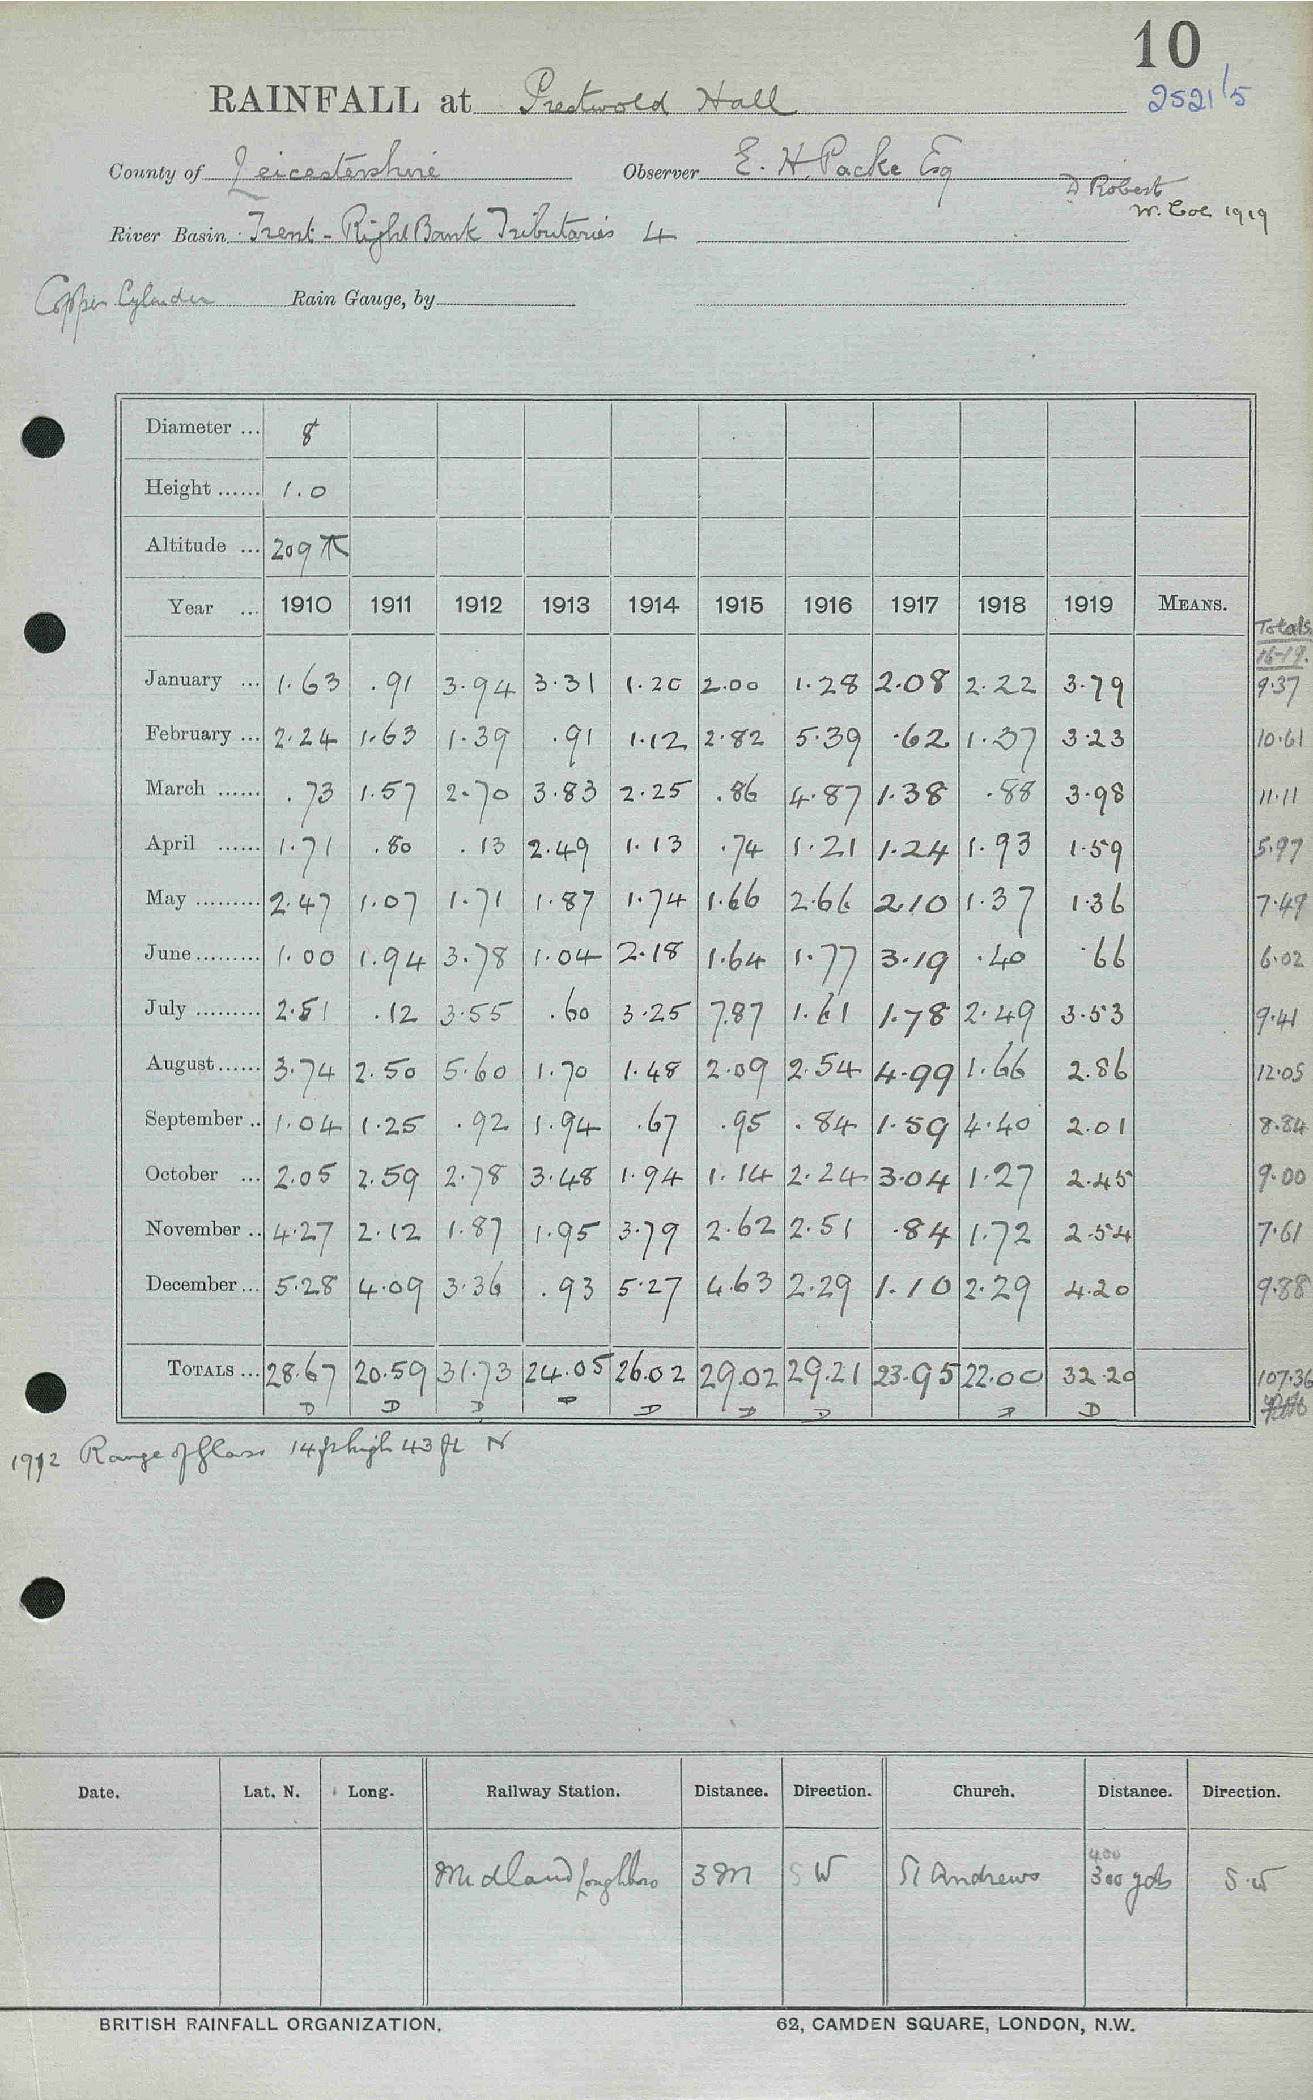 10
RAINFALL at Prestwold Hall 2521/5
County of Leicestershire Observer E. H. Packe Esq
D Roberts
W. Coe 1919
River Basin Trent - Right Bank Tributaries 4
Copper Cylinder Rain Gauge, by
Diameter ... 8
Height ...... 1.0
Altitude ... 209
Year ... 1910 1911 1912 1913 1914 1915 1916 1917 1918 1919 MEANS. Totals 16-19.
January ... 1.63 .91 3.94 3.31 1.20 2.00 1.28 2.08 2.22 3.79 9.37
February ... 2.24 1.63 1.39 .91 1.12 2.82 5.39 .62 1.37 3.23 10.61
March ...... .73 1.57 2.70 3.83 2.25 .86 4.87 1.38 .88 3.98 11.11
April ...... 1.71 .80 .13 2.49 1.13 .74 1.21 1.24 1.93 1.59 5.97
May ......... 2.47 1.07 1.71 1.87 1.74 1.66 2.66 2.10 1.37 1.36 7.49
June ......... 1.00 1.94 3.78 1.04 2.18 1.64 1.77 3.19 .40 .66 6.02
July ......... 2.51 .12 3.55 .60 3.25 7.87 1.61 1.78 2.49 3.53 9.41
August ...... 3.74 2.50 5.60 1.70 1.48 2.09 2.54 4.99 1.66 2.86 12.05
September .. 1.04 1.25 .92 1.94 .67 .95 .84 1.59 4.40 2.01 8.84
October ... 2.05 2.59 2.78 3.48 1.94 1.14 2.24 3.04 1.27 2.45 9.00
November .. 4.27 2.12 1.87 1.95 3.79 2.62 2.51 .84 1.72 2.54 7.61
December ... 5.28 4.09 3.36 .93 5.27 4.63 2.29 1.10 2.29 4.20 9.88
TOTALS ... 28.67 20.59 31.73 24.05 26.02 29.02 29.21 23.95 22.00 32.20 107.36
D D D D D D D D D
1912 Range of Glass 14 ft high 43 ft N
Date. Lat. N. Long. Railway Station. Distance. Direction. Church. Distance. Direction.
400
Midland Loughboro 3 M SW St Andrews 300 yds S.W
BRITISH RAINFALL ORGANIZATION. 62, CAMDEN SQUARE, LONDON, N.W.